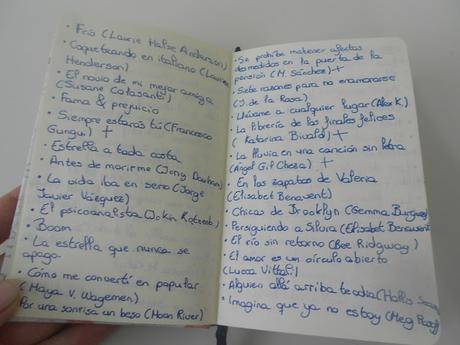 · Frío (Laurie Halse Anderson)
· Coqueteando en italiano (Lauren
Henderson)
· El novio de mi mejor amiga
(Susane Colasanti)
· Fama & prejuicio
· Siempre estarás tú (Francesco
Gungui) +
· Estrella a toda costa
· Antes de morirme (Jenny Downham)
· La vida iba en serio (Jorge
Javier Vázquez)
· El psicoanalista (John Katzenbach)
· Boom
· La estrella que nunca se
apaga
· Cómo me convertí en popular
(Maya V. Wagenen)
Por una sonrisa un beso (Moon River)
· Se prohíbe mantener afectos
desmedidos en la puerta de la
pensión (M. Sánchez) +
· Siete razones para no enamorarse
(J. de la Rosa)
· Llévame a cualquier lugar (Alex K.)
· La librería de los finales felices
(Katarina Bivald) +
· La lluvia en una canción sin letra
(Ángel Gil Cheza) +
· En los zapatos de Valeria
(Elísabet Benavent)
· Chicas de Brooklyn (Gemma Burgess)
· Persiguiendo a Silvia (Elísabet Benavent)
· El río sin retorno (Bee Ridgway)
· El amor es un círculo abierto
(Lucca Vittali)
· Alguien allá arriba te odia (Hollis
· Imagina que ya no estoy (Meg